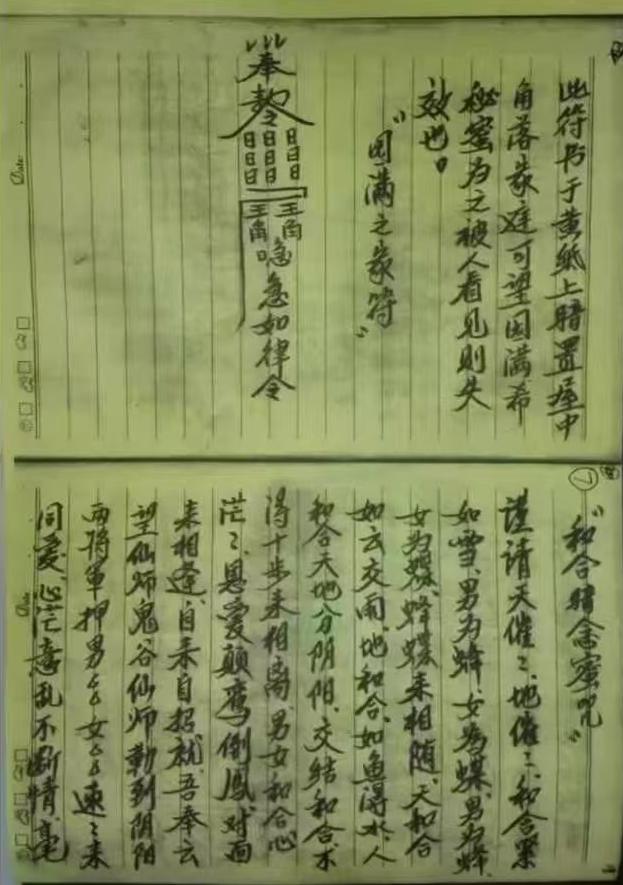 此符书于黄纸上暗置屋中
角落家庭可望园满希
秘蜜为之被人看见则失
效也。
“园满之家符”
奉勅令
日日日
日日日
日日日
急如律令
“和合暗念蜜咒”
谨请天催〻、地催〻、和合罗
如雪、男为蜂、女为蝶、男为蜂、
女为蝶、蜂蝶来相随、天和合
如云交雨、地和合、如鱼得水、人
和合天地分阴阳、交结和合术
得十步来相离、男女和合心
茫〻、恩爱颠鸾倒凤、对面
来相逢、自来自招就、吾奉云
望仙师鬼谷仙师勅到阴阳
两将军押男ㄙㄙ女ㄙㄙ速〻来
同爱、心茫意乱不断情、毫